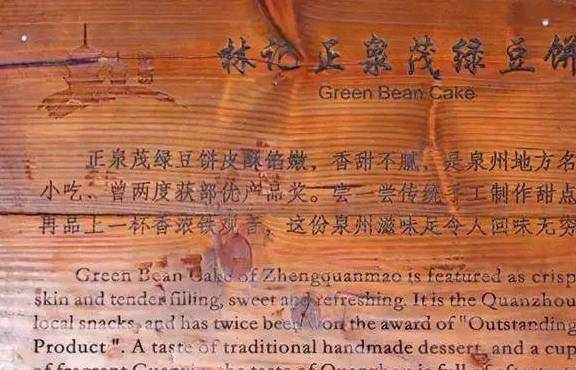 林记正泉茂绿豆饼
Green Bean Cake
正泉茂绿豆饼皮酥馅嫩，香甜不腻，是泉州地方名
小吃、曾两度获部优产品奖。尝一尝传统手工制作甜点
再品上一杯香浓铁观音，这份泉州滋味足令人回味无穷
Green Bean Cake of Zhengquanmao is featured as crisp
skin and tender filling, sweet and refreshing. It is the Quanzhou
local snacks, and has twice been won the award of "Outstanding
Product ". A taste of traditional handmade dessert, and a cup
of fragrant the taste of Quanzhou is full of